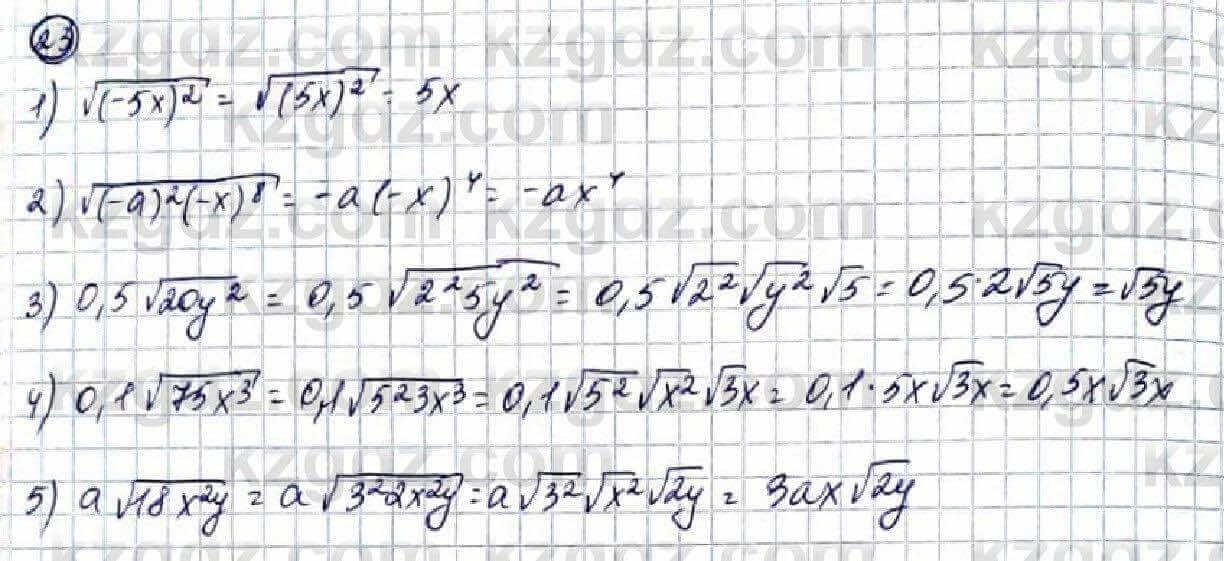 23
1) √(-5x)² = √(5x)² = 5x
2) √(-a)²(-x)⁸ = -a(-x)⁴ = -ax⁴
3) 0,5√20y² = 0,5√2²5y² = 0,5√2²√y²√5 = 0,5·2√5y = √5y
4) 0,1√75x³ = 0,1√5²3x³ = 0,1√5²√x²√3x = 0,1·5x√3x = 0,5x√3x
5) a√18x²y = a√3²2x²y = a√3²√x²√2y = 3ax√2y
kzgdz.com